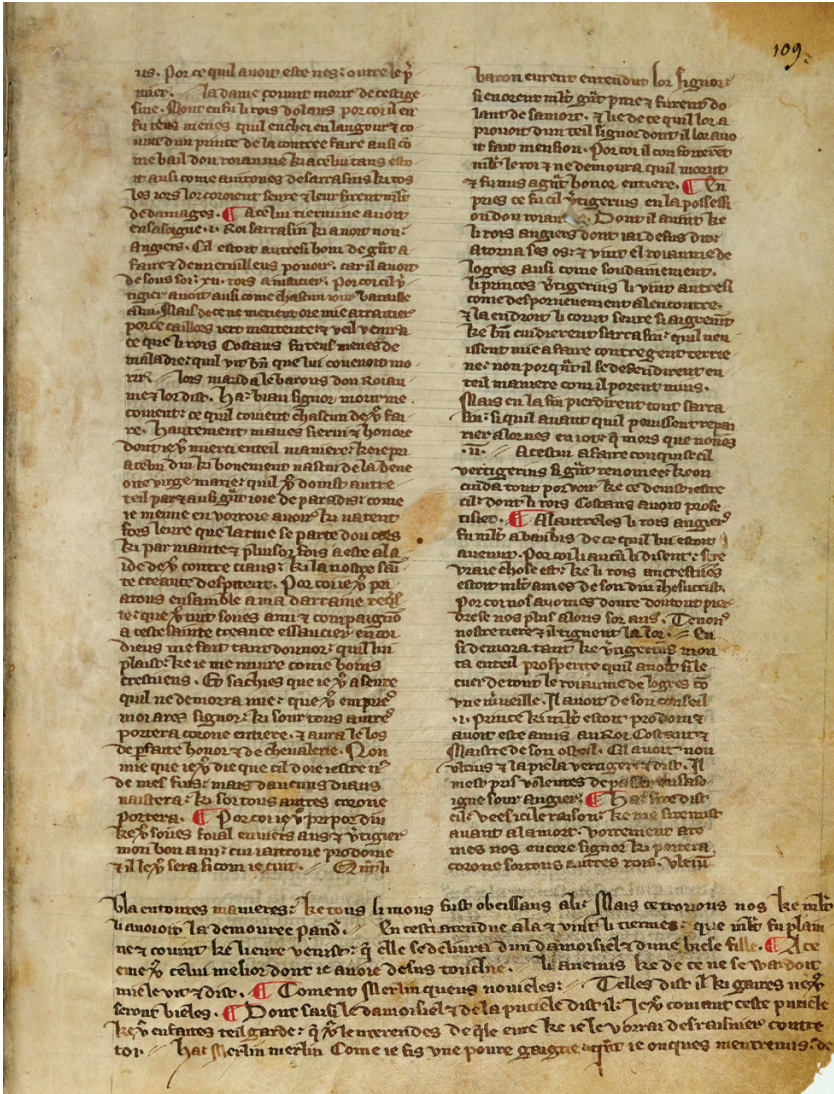 109
us. Por ce quil avoit este nes: outre le p̄
mier. la dame covint morir de cest ge
sine. Mout en fu li rois dolans por coi il en
fu tens menes quil enchei en langour ⁊ co
vint dun prince de la contree faire ausi co
me bail dou roiaume ki a celui tans esto
it ausi come avirones de sarrasins ki tos
les iors lor coroient seure ⁊ leur firent mlt̄
de damages. ¶ A celui termine avoit
en saxoigne .i. Roi sarrasin ki avoit non:
angiers. Cil estoit autresi hom de gr̄t a
faire ⁊ de mervilleus pooir. car il avoit
de sous soi .xii. rois a iusticier. Por coi cil v̄
tigier avoit ausi come chascun iour bataille
a lui. Mais de ce ne metient ore mie
por ce ⁊ veil venir a
ce que li rois Costans fu tens menes de
maladie: quil vit bn̄ que lui covenoit mo
rir. lors manda les barons dou Roiau
me ⁊ lor dist. Ha: biau signor morir me
covient: ce quil covient chascun de v̄ fai
re. Hautement maves siervi ⁊ honore
dont ie v̄ merci en teil maniere: ke ie pri
a celui diu ki bonement nasqui de la bene
oite virge marie: quil v̄ doinst autre
teil part ausi gr̄t ioie de paradis: come
ie meime en vorroie avoir ki natent
fors leure que larme se parte dou cors
ki par mainte ⁊ plusor fois a este a la
ide de v̄ contre ciaus: ki la nostre sai
te creance despitent. Por coi ie v̄ pri
a tous ensamble a ma darraine reqs̄
te: que v̄ tuit soies ami ⁊ compaignō
a ceste sainte creance essaucier encoi
dieus me fait tant donnor: quil lui
plaist: ke ie me muire come boins
crestiiens. Et sachies que ie v̄ aseure
quil ne demorra mie: que v̄ empres
moi ares signor: ki sour tous autres
portera corone entiere. ⁊ aura le los
de pfaite honor ⁊ de chevalerie. Non
mie que ie v̄ die que cil doie iestre
de mes fius: mais daucuns diaus
naistera: ki sor tous autres corone
portera. ¶ Por coi ie v̄ pri por diu
ke v̄ soies foial envers aus ⁊ v̄tigier
mon bon ami: cui ian troue prodome
⁊ il le v̄ sera si com ie cuit. Qn̄t li
baron eurent entendut lor signor:
si en orent mlt̄ gr̄t pitie ⁊ furent do
lant de sa mort. ⁊ lie de ce quil lor a
provoit dun teil signor dont il lor avo
it fait mension. Por coi il conforterent
mlt̄ le roi ⁊ ne demoura quil morut
⁊ fu mis a gr̄t honor en tiere. ¶ En
pries ce fu cil v̄tigerius en la possessi
on dou roiaume. Dont il avint ke
li rois angiers dont iai desus dit:
atorna ses os: ⁊ vint el roiaume de
logres ausi come soudainement.
li princes v̄tigerius li vint autresi
come desporvevement a lencontre.
⁊ la endroit li corut seure si aigremt̄
ke bn̄ cuidierent sarrasin: quil neu
issent mie a faire contre gent terrie
ne: non por qn̄t il se desfendirent en
teil maniere com il porent mius.
Mais en la fin pierdirent tout sarra
sin: si quil avant quil peuissent repai
rier a lor nes en i ot q̄ mors que noiies
.ii. A cestui afaire conquist cil
vertigerius si gr̄t renomee: ke on
cuida tout por voir ke ce deuist iestre
cil: dont li rois Costans avoit profe
tisiet. ¶ A lautre les li rois angiers
fu mlt̄ abaubis de ce quil li estoit
avenut. Por coi li autn̄ li disent: sire
vraie chose est: ke li rois an crestiiens
estoit mlt̄ ames de son diu ihesucrist.
Por coi nos avomes doute dou tout pier
dre se nos plus alons sor aus. Tenons
nostre tiere ⁊ il tignent la lor. En
si demora tant ke v̄tigerius mon
ta en teil prosperite quil avoit si le
cuer de tout le roiaume de logres cō
une miervelle. Il avoit de son conseil
.i. prince ki mlt̄ estoit prodom ⁊
avoit este amis au Roi Costant ⁊
Maistre de son ostoil. Cil avoit non
vltius ⁊ lapiela vertigier ⁊ dist. Il
mest pris volentes de passer en saxo
igne sour angier. ¶ Ha: sire dist
cil: ve es ci le raison: ke me sire mist
avant a la mort. vortement aro
mes nos encore signor ki portera
corone sor tous autres rois. vltiu
bla en toutes manieres: ke tous li mons fust obeissans a li: Mais ce trovons nos ke mlt̄
li anoioit la demouree pand. En cest atendue ala ⁊ vinst li tiermes: que mlt̄ fu plain
ne ⁊ covint ke lieure venist: q̄ elle se delivra dun damoisiel ⁊ dune biele fille. ¶ A ce
eme v̄ celui melior dont ie avoie desus touchie. li anemis ke de ce ne se wardoit
mie le vit ⁊ dist. ¶ Coment Merlin queus novieles: Telles dist il ki gaires ne v̄
seront bieles. ¶ Dont saisi le damoisiel ⁊ de la puciele dist il: Ie v̄ comant ceste puciele
ke v̄ en faites teil garde: q̄ v̄ le me rendes de qele eure ke ie le vorrai desraisnier contre
toi. Ha: Merlin merlin Come ie fis une poure gaaigne: qn̄t ie onques mentremis: de